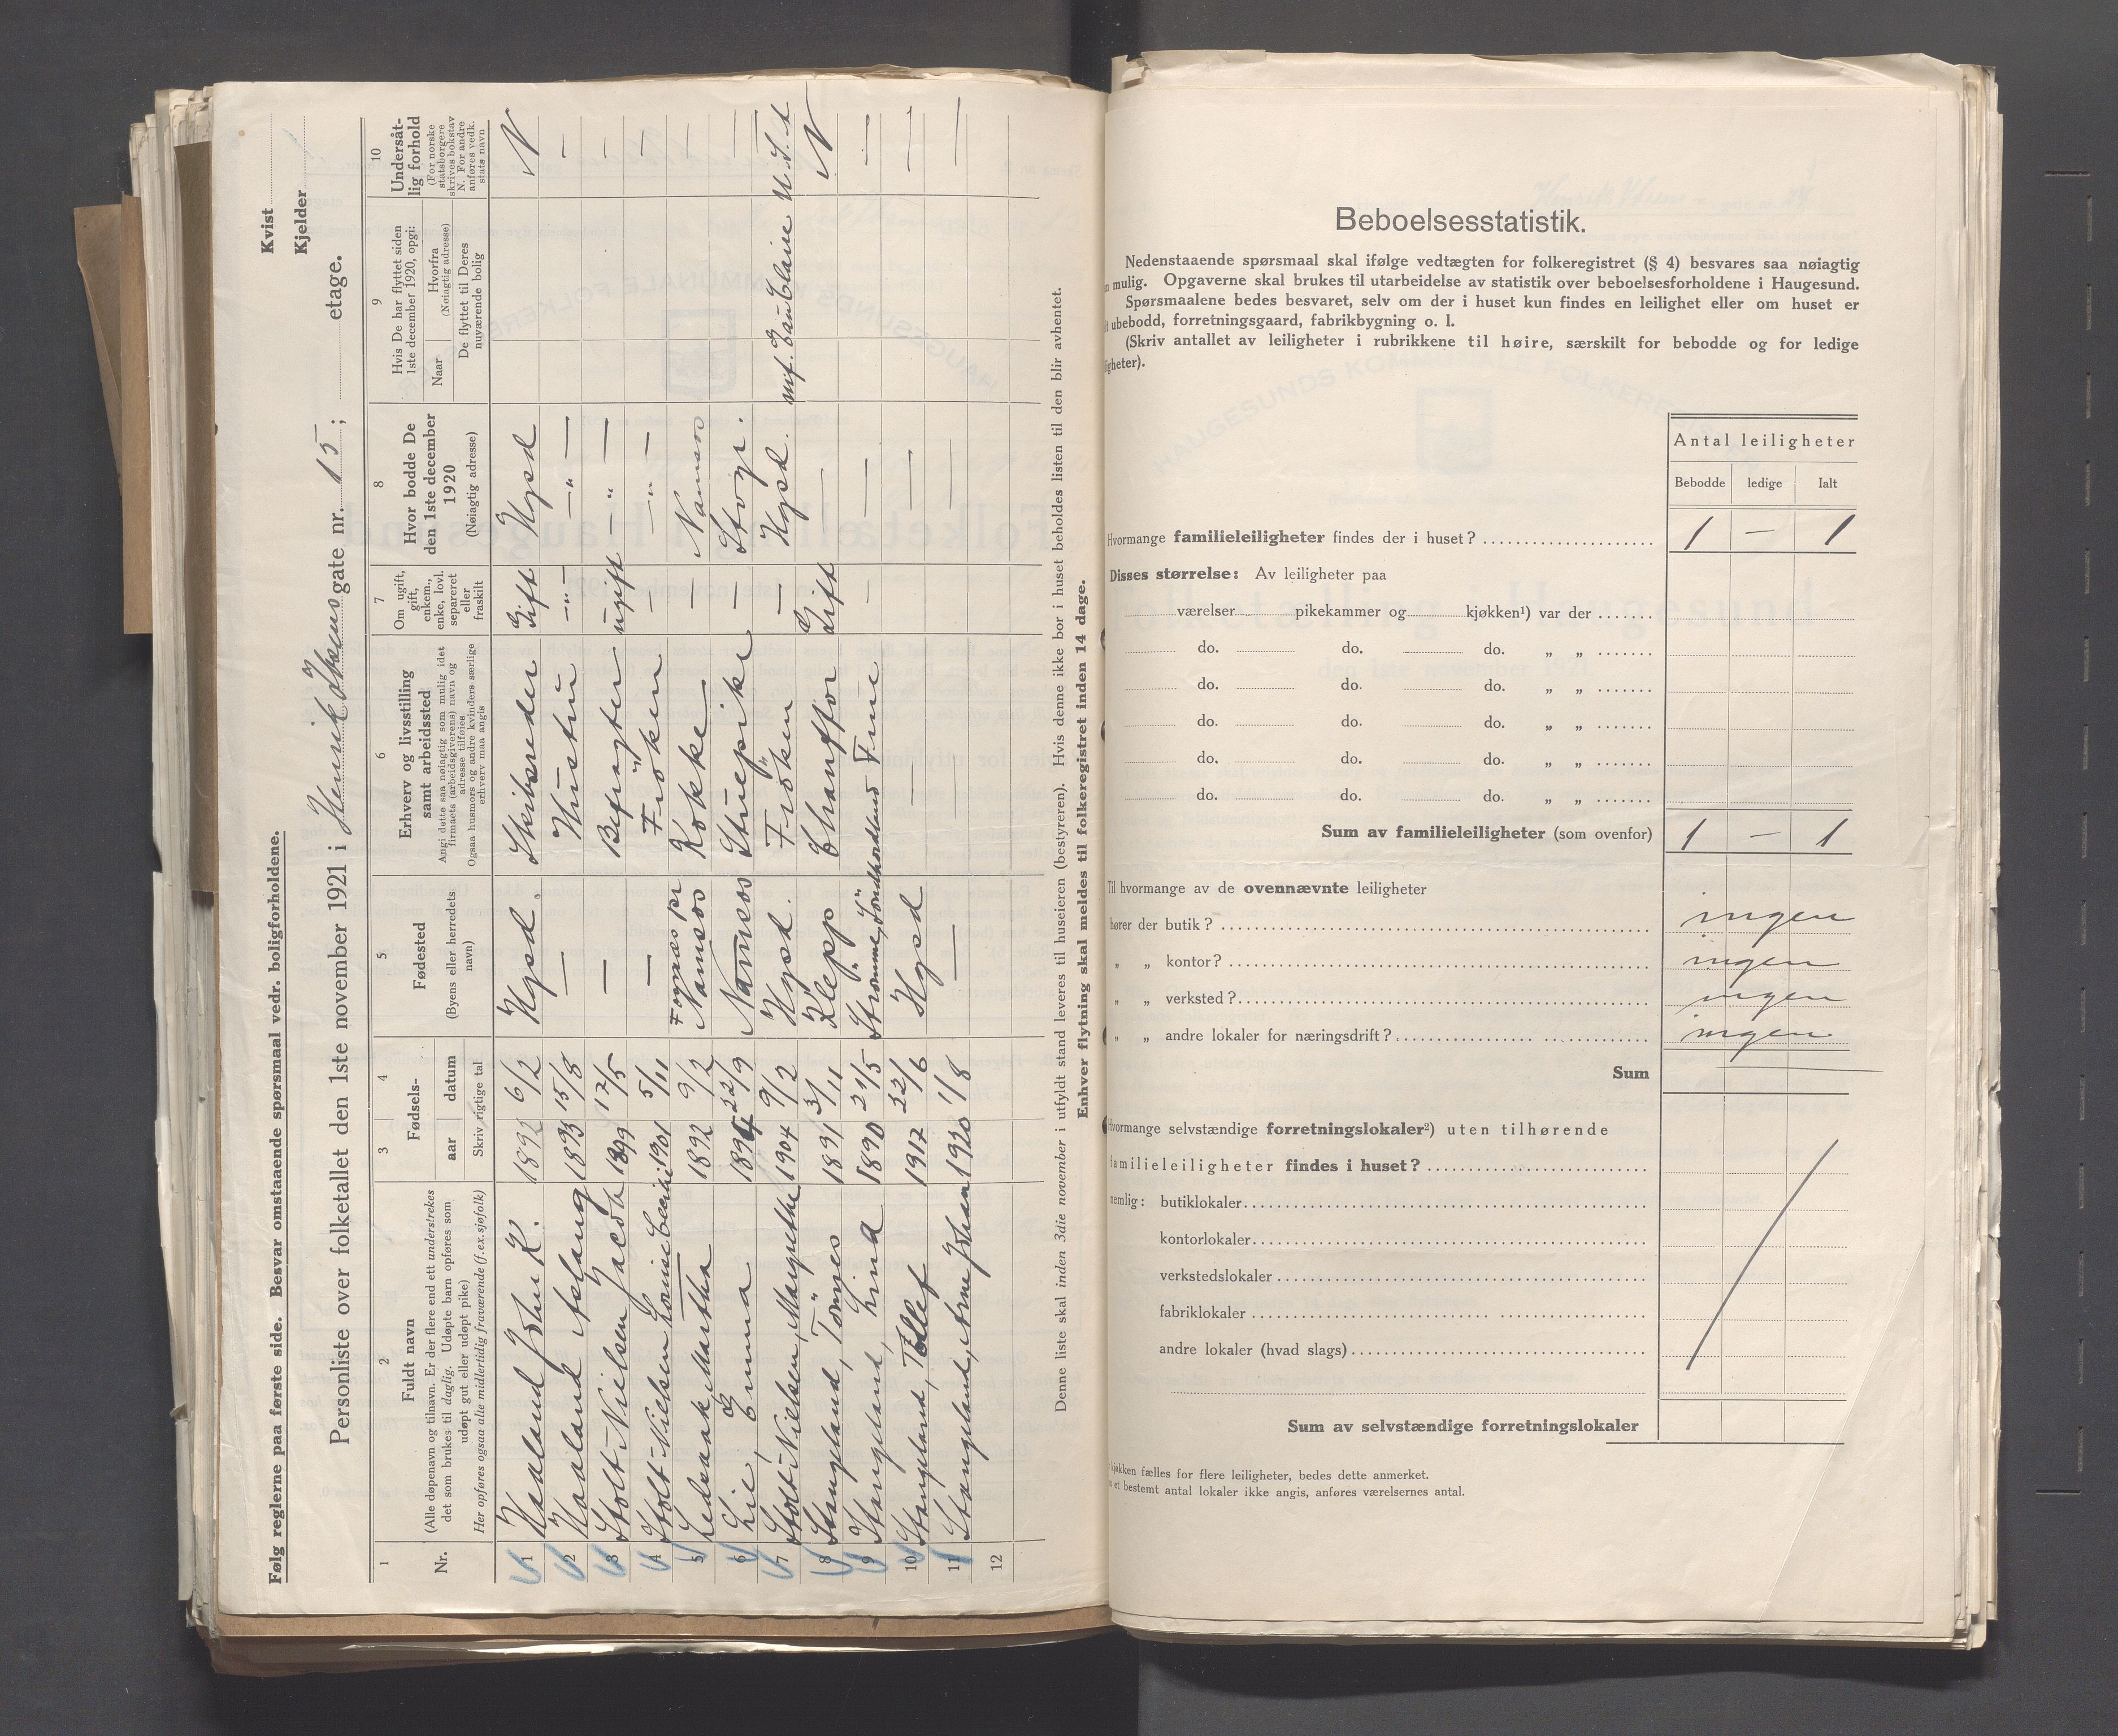 Følg reglerne paa første side. Besvar omstaaende spørsmaal vedr. boligforholdene.
Kvist
Kjelder
Personliste over folketallet den 1ste november 1921 i Henrik Ibsens gate nr. 15; etage.
1 2 3 4 5 6 7 8 9 10
Nr.
Fuldt navn
(Alle døpenavn og tilnavn. Er der flere end ett understrekes
det som brukes til daglig. Udøpte barn opføres som
udøpt gut eller udøpt pike)
Her opføres ogsaa alle midlertidig fraværende (f.ex. sjøfolk)
Fødsels-
aar datum
Skriv rigtige tal
Fødested
(Byens eller herredets
navn)
Erhverv og livsstilling
samt arbeidssted
Angi dette saa nøiagtig som mulig idet
firmaets (arbeidsgiverens) navn og
adresse tilføies
Ogsaa husmors og andre kvinders særlige
erhverv maa angis
Om ugift,
gift,
enkem.,
enke, lovl.
separeret
eller
fraskilt
Hvor bodde De
den 1ste december
1920
(Nøiagtig adresse)
Hvis De har flyttet siden
1ste december 1920, opgi:
Naar
Hvorfra
(Nøiagtig adresse)
De flyttet til Deres
nuværende bolig
Undersåt-
lig forhold
(For norske
statsborgere
skrives bokstav
N. For andre
anføres vedk.
stats navn
1 Haaland John K. 1892 6/2 Hgsd. Skibsreder Gift Hgsd N
2 Haaland Aslaug 1893 15/8 — Hustru —"— —"— —
3 Stolt-Nielsen Jacob 1899 12/5 — Befragter ugift —"— —
4 Stolt-Nielsen Lovise Cecilie 1901 5/11 — Frøken — —"— —
5 Ledsaak Martha 1892 9/2 Fognæs pr Namsos Kokke — Namsos —
6 Lie, Emma 22/9 Namsos Stuepike — —
7 Stolt-Nielsen, Margrethe 1904 9/2 Hgsd. Frøken — Hgsd. U.S.A
8 Stangeland, Tønnes 1891 3/11 Klepp Chauffør Gift — N
9 Stangeland, Lina 1890 21/5 Strømme, Söndhordland Frue — — —
10 Stangeland, Tollef 1917 22/6 Hgsd — — —
11 Stangeland, Arne Johan 1920 1/8 — — — —
12
Denne liste skal inden 3die november i utfyldt stand leveres til huseieren (bestyreren). Hvis denne ikke bor i huset beholdes listen til den blir avhentet.
Enhver flytning skal meldes til folkeregistret inden 14 dage.
Beboelsesstatistik.
Nedenstaaende spørsmaal skal ifølge vedtægten for folkeregistret (§ 4) besvares saa nøiagtig
mulig. Opgaverne skal brukes til utarbeidelse av statistik over beboelsesforholdene i Haugesund.
Spørsmaalene bedes besvaret, selv om der i huset kun findes en leilighet eller om huset er
ubebodd, forretningsgaard, fabrikbygning o. l.
(Skriv antallet av leiligheter i rubrikkene til høire, særskilt for bebodde og for ledige
igheter).
Antal leiligheter
Bebodde ledige Ialt
Hvormange familieleiligheter findes der i huset? 1 — 1
Disses størrelse: Av leiligheter paa
værelser pikekammer og kjøkken¹) var der
do. do. do. „ „
do. do. do. „ „
do. do. do. „ „
do. do. do. „ „
do. do. do. „ „
Sum av familieleiligheter (som ovenfor) 1 — 1
Til hvormange av de ovennævnte leiligheter
hører der butik? ingen
„ „ kontor? ingen
„ „ verksted? ingen
„ „ andre lokaler for næringsdrift? ingen
Sum
Hvormange selvstændige forretningslokaler²) uten tilhørende
familieleiligheter findes i huset?
nemlig: butiklokaler
kontorlokaler
verkstedslokaler
fabriklokaler
andre lokaler (hvad slags)
Sum av selvstændige forretningslokaler
kjøkken fælles for flere leiligheter, bedes dette anmerket.
et bestemt antal lokaler ikke angis, anføres værelsernes antal.